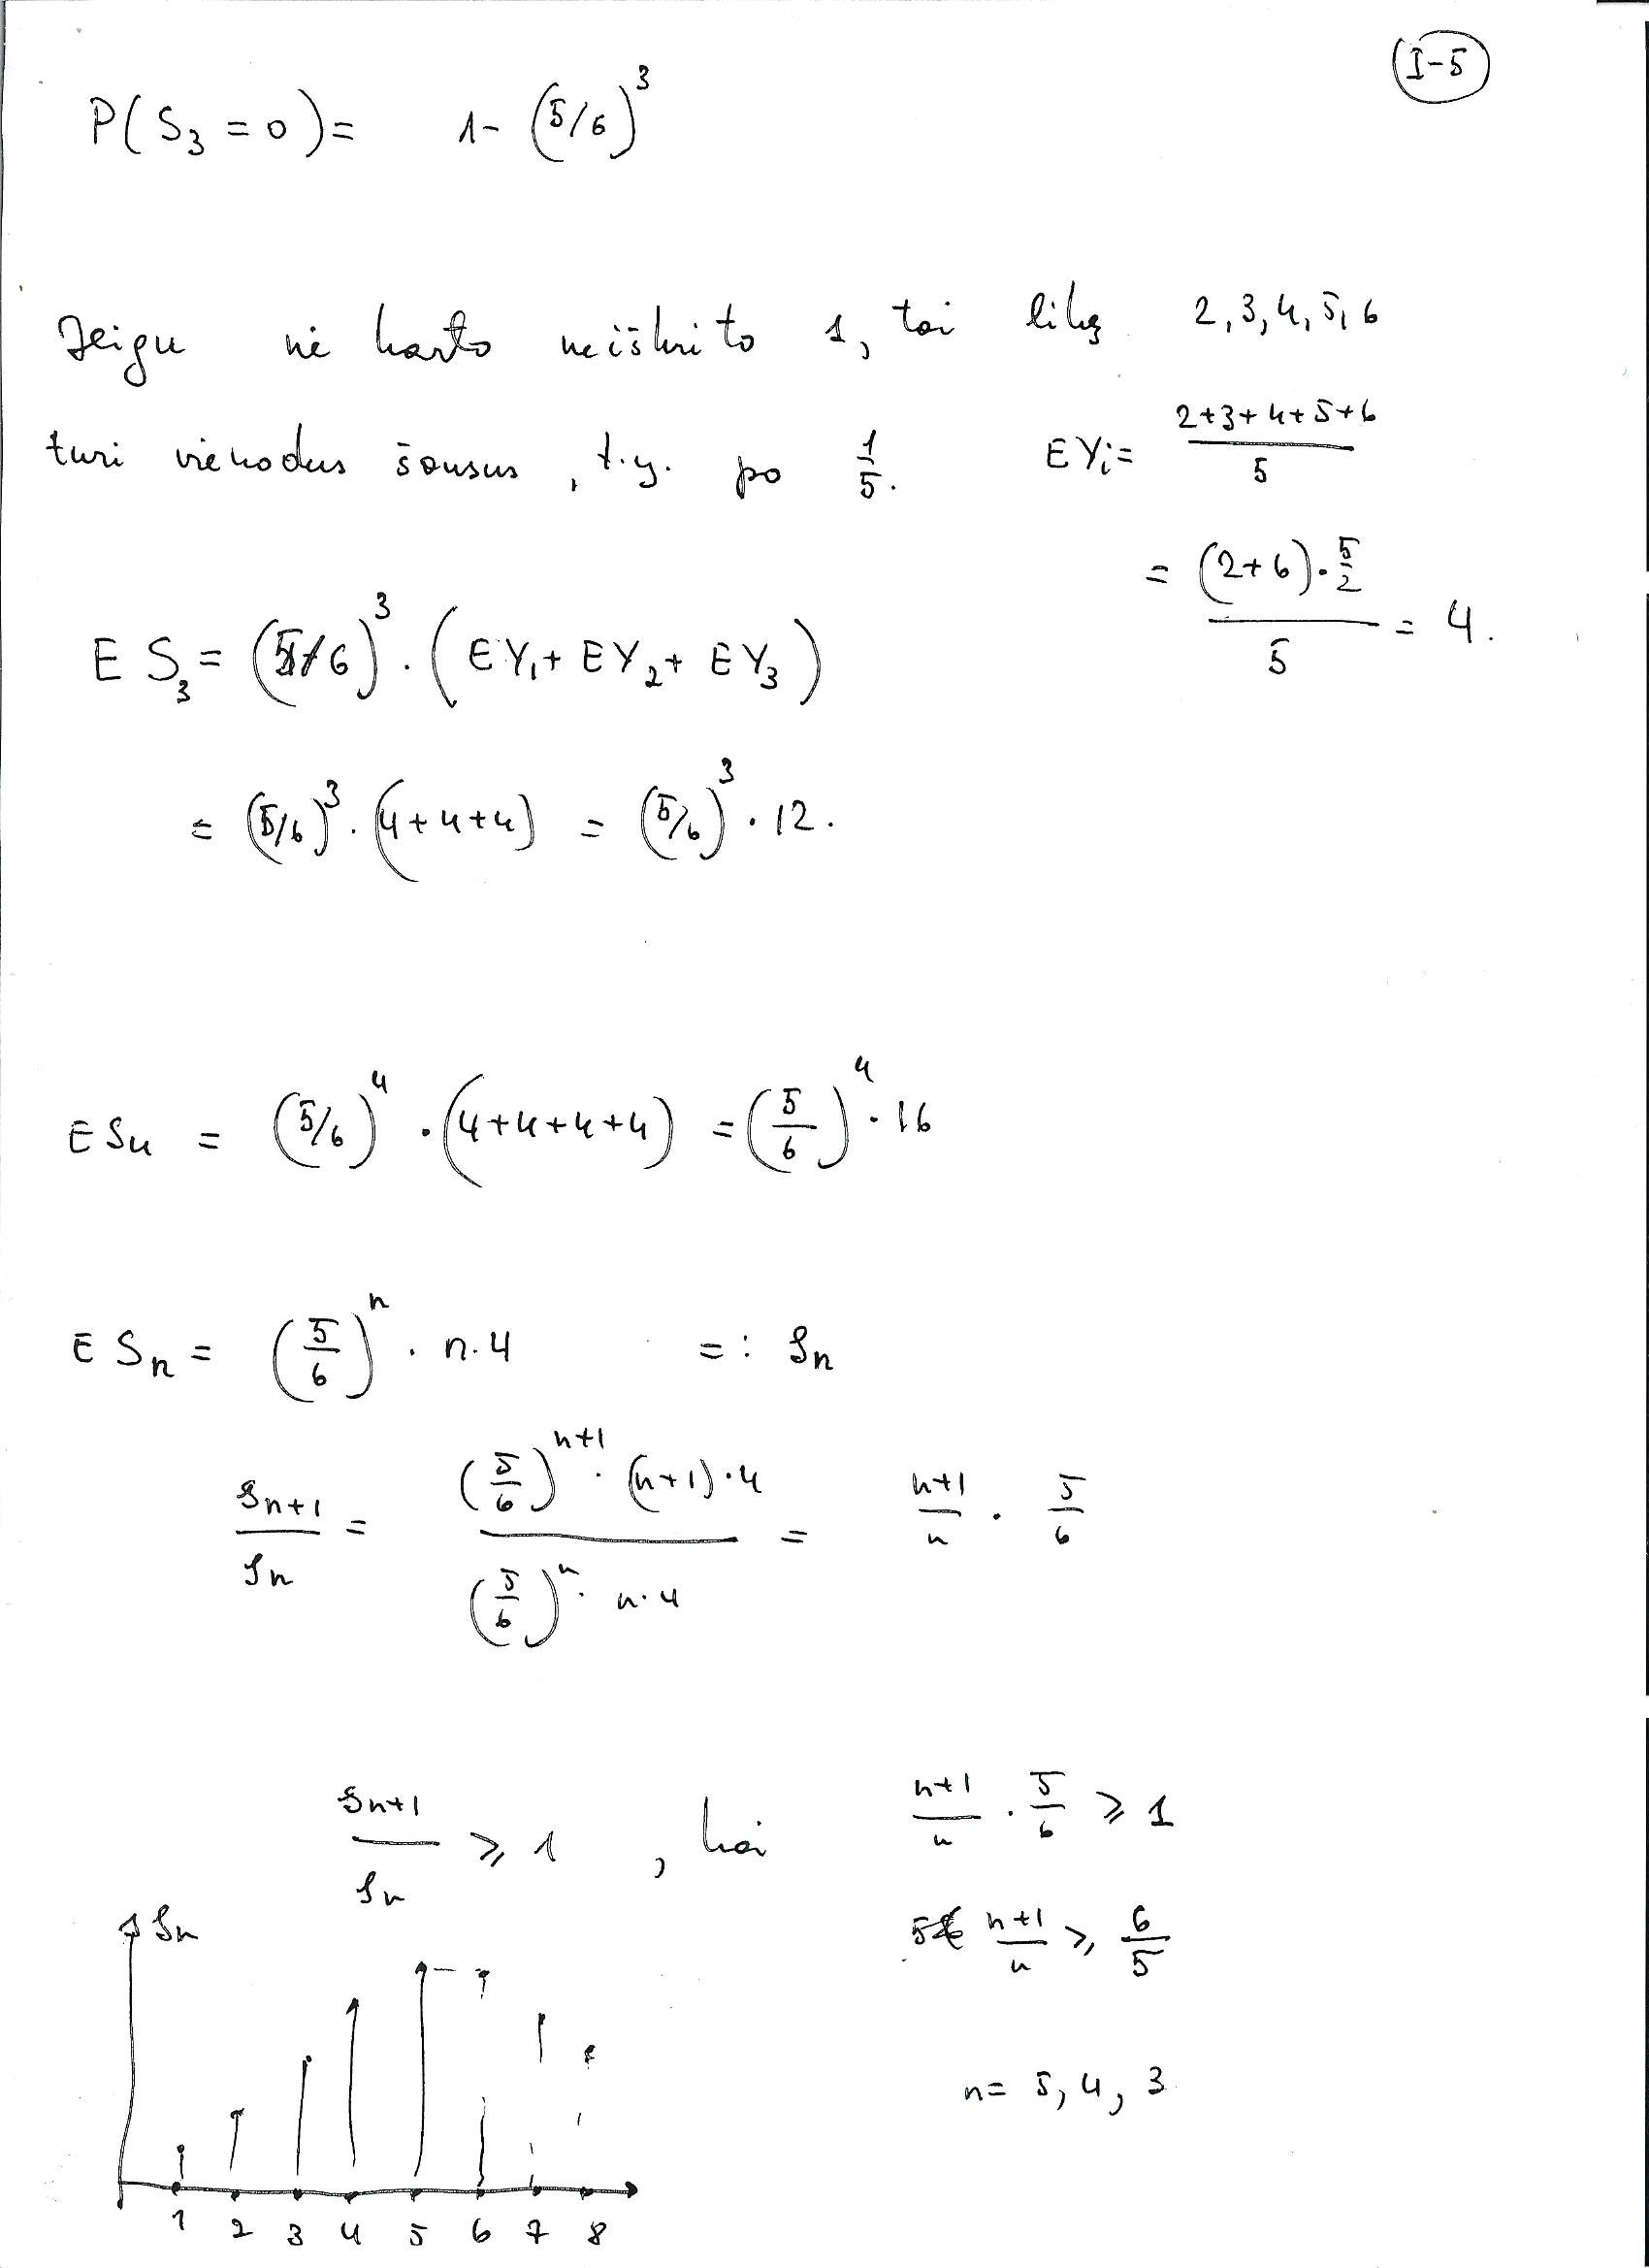 I-5
P(S₃ = 0) = 1 - (5/6)³
Jeigu nė karto neiškrito 1, tai likę 2, 3, 4, 5, 6
turi vienodus šansus, t.y. po 1/5. EYᵢ = (2+3+4+5+6)/5
= ((2+6)·5/2)/5 = 4.
E S₃ = (5/6)³ · (EY₁ + EY₂ + EY₃)
= (5/6)³ · (4+4+4) = (5/6)³ · 12.
E S₄ = (5/6)⁴ · (4+4+4+4) = (5/6)⁴ · 16
E Sₙ = (5/6)ⁿ · n·4 =: sₙ
sₙ₊₁/sₙ = ((5/6)ⁿ⁺¹ · (n+1)·4)/((5/6)ⁿ · n·4) = (n+1)/n · 5/6
sₙ₊₁/sₙ ⩾ 1, kai (n+1)/n · 5/6 ⩾ 1
sₙ
(n+1)/n ⩾ 6/5
n = 5, 4, 3
1 2 3 4 5 6 7 8